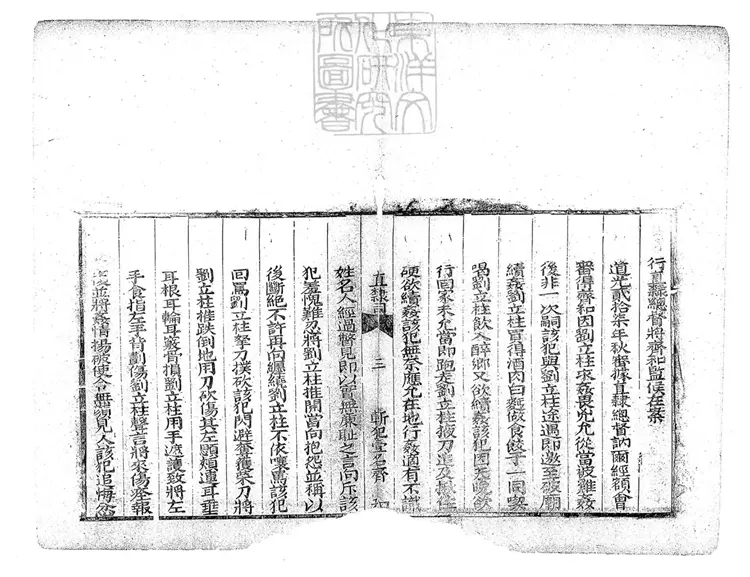 東洋文
化研究
所圖書
行直隸總督將齊和監候在案
道光貳拾柒年秋審據直隸總督訥爾經額會
審得齊和因劉立柱求姦畏兇允從當被雞姦
後非一次嗣該犯與劉立柱途遇即邀至破廟
續姦劉立柱買得酒肉曰麪飯食陵于一同喫
喝劉立柱飲入醉鄉又欲續姦該犯因天晚欲
行回家未允當即跑走劉立柱拔刀追及揪住
硬欲續姦該犯無奈應允在地行姦適有不識
直隸司 三 斬犯壹名齊 和
姓名人經過瞥見即以寡無廉恥之言向斥該
犯羞愧難忍將劉立柱推開當向抱怨並稱以
後斷絕不許再向纏繞劉立柱不依嚷罵該犯
回罵劉立柱拏刀撲砍該犯閃避奪獲柴刀將
劉立柱推跌倒地用刀砍傷其左顋頰連耳垂
耳根耳輪耳竅骨損劉立柱用手遮護致將左
手食指左手背劃傷劉立柱聲言將來傷痊報
復並將姦情揚破使令無顏見人該犯追悔忿